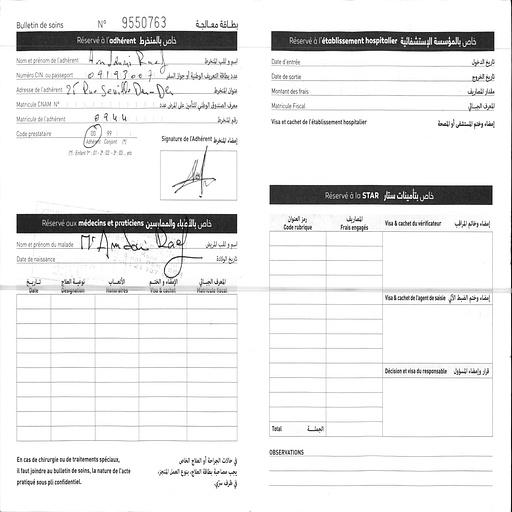 Bulletin de soins N° 9550763 بطاقة معالجة
Réservé à l'adhérent خاص بالمنخرط
Nom et prénom de l'adhérent Amdouni Raef اسم و لقب المنخرط
Numéro CIN ou passeport 09193007 عدد بطاقة التعريف الوطنية أو جواز السفر
Adresse de l'adhérent 25 Rue Seville عنوان المنخرط
Matricule CNAM N° معرف الصندوق الوطني للتأمين على المرض عدد
Matricule de l'adhérent 0944 رقم المنخرط
Code prestataire 00 99 Signature de l'Adhérent إمضاء المنخرط
Adhérent Conjoint (*)
(*) : Enfant 1er : 01 - 2 : 02 - 3 : 03 ... etc
Réservé aux médecins et praticiens خاص بالأطباء والممارسين
Nom et prénom du malade Mr Amdouni Raef اسم و لقب المريض
Date de naissance تاريخ الولادة
تاريخ نوعية العلاج الأتعاب الإمضاء و الختم المعرف الجبائي
Date Désignation Honoraires Visa & cachet Matricule fiscal
En cas de chirurgie ou de traitements spéciaux,
il faut joindre au bulletin de soins, la nature de l'acte
pratiqué sous pli confidentiel.
في حالات الجراحة أو العلاج الخاص
يجب مصاحبة بطاقة العلاج، بنوع العمل المنجز،
في ظرف سري.
Réservé à l'établissement hospitalier خاص بالمؤسسة الإستشفائية
Date d'entrée تاريخ الدخول
Date de sortie تاريخ الخروج
Montant des frais مقدار المصاريف
Matricule Fiscal المعرف الجبائي
Visa et cachet de l'établissement hospitalier إمضاء وختم المستشفى أو المصحة
Réservé à la STAR خاص بتأمينات ستار
رمز العنوان المصاريف
Code rubrique Frais engagés Visa & cachet du vérificateur إمضاء وخاتم المراقب
Visa & cachet de l'agent de saisie إمضاء وختم الضبط الآلي
Décision et visa du responsable قرار وإمضاء المسؤول
Total الجملة
OBSERVATIONS